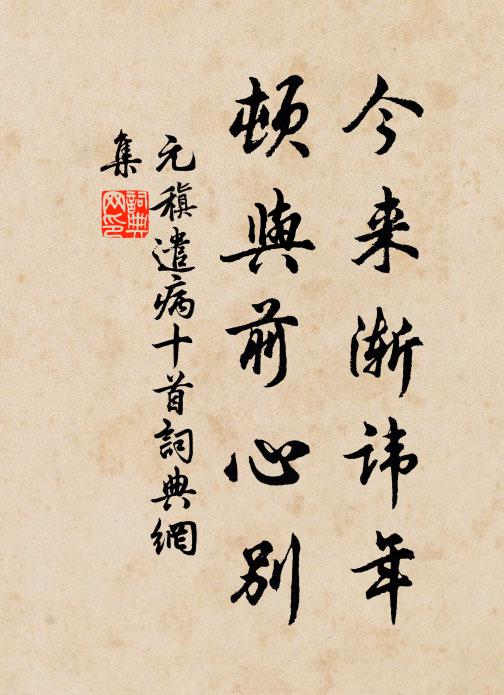 今来渐讳年
顿與前心别
元稹遣病十首詞典網
集
詞典
网印